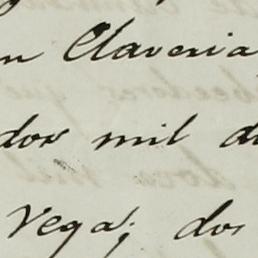 n Claveria
dos mil d
Vega; dos